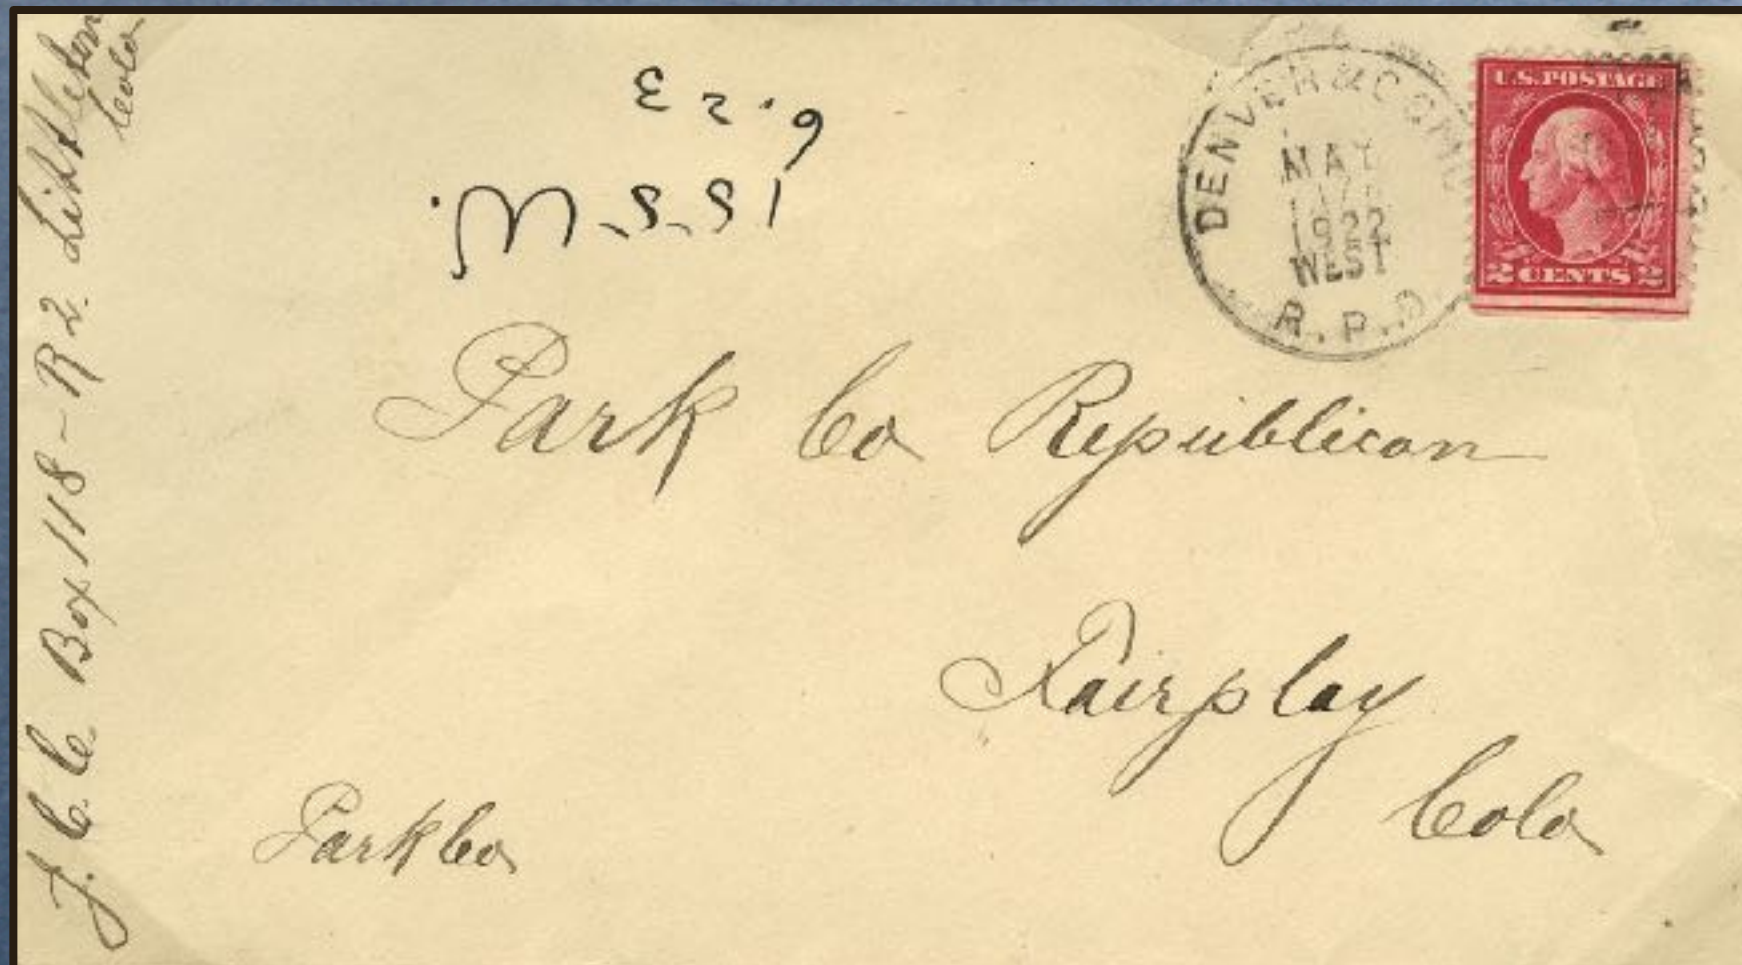 J. C. C. Box 118 - R 2. Littleton
Colo
DENVER & COMO
MAY
17
1922
WEST
R.P.O.
U.S. POSTAGE
2 CENTS 2
Park Co Republican
Fairplay
Colo
Park Co